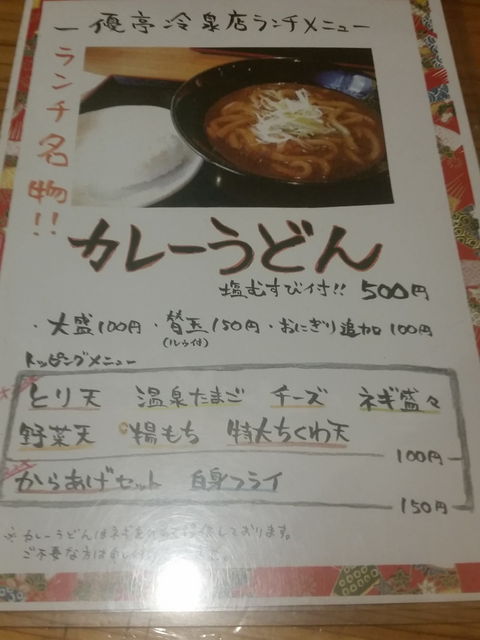 一優亭冷泉店ランチメニュー
ランチ名物!!
カレーうどん
塩むすび付!! 500円
・大盛100円・替玉150円・おにぎり追加100円
(ルゥ付)
トッピングメニュー
とり天 温泉たまご チーズ ネギ盛々
野菜天 揚もち 特大ちくわ天
100円
からあげセット 白身フライ
150円
※カレーうどんはネギを しております。
ご不要な方は